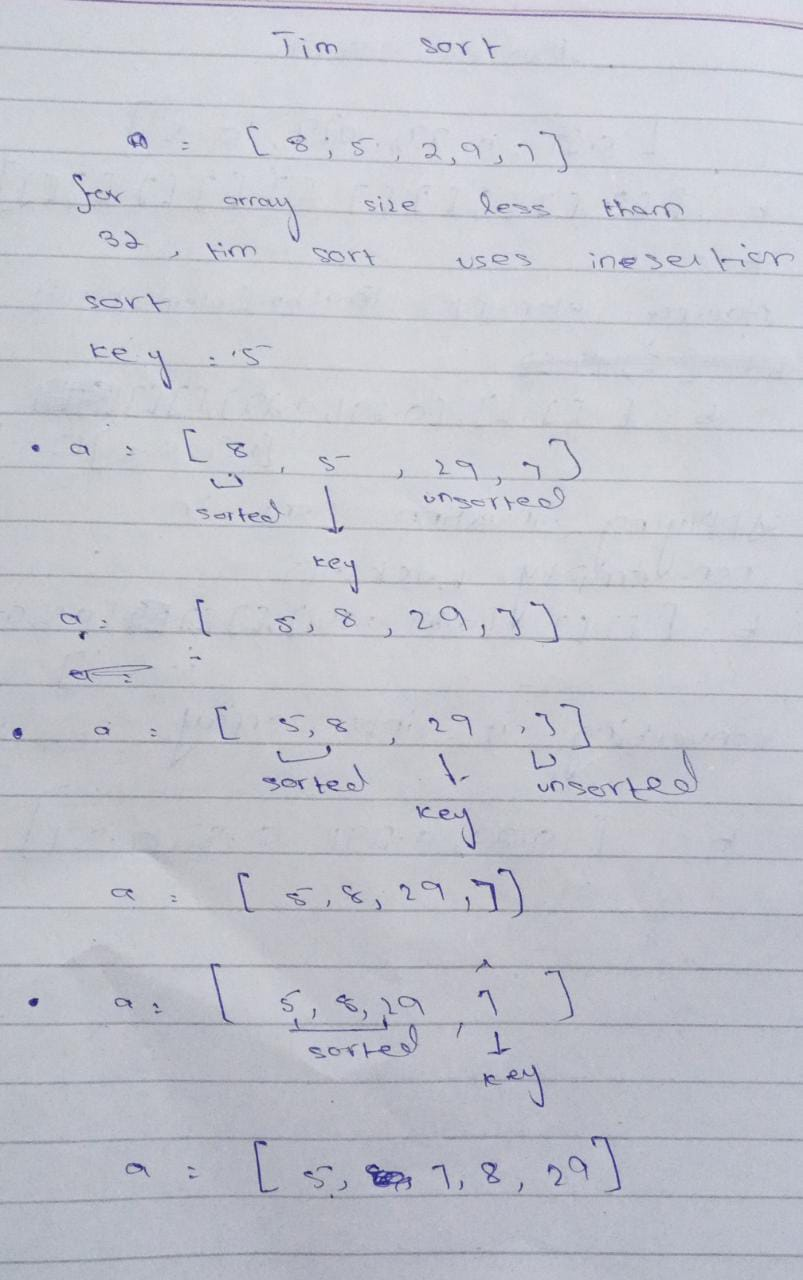 Tim sort
a = [ 8, 5, 2, 9, 7 ]
for array size less than
32, tim sort uses inesertion
sort
key = 5
• a = [ 8, 5, 29, 7 ]
sorted unsorted
key
a = [ 5, 8, 29, 7 ]
a =
• a = [ 5, 8, 29, 7 ]
sorted unsorted
key
a = [ 5, 8, 29, 7 ]
• a = [ 5, 8, 29, 7 ]
sorted
key
a = [ 5, 7, 8, 29 ]